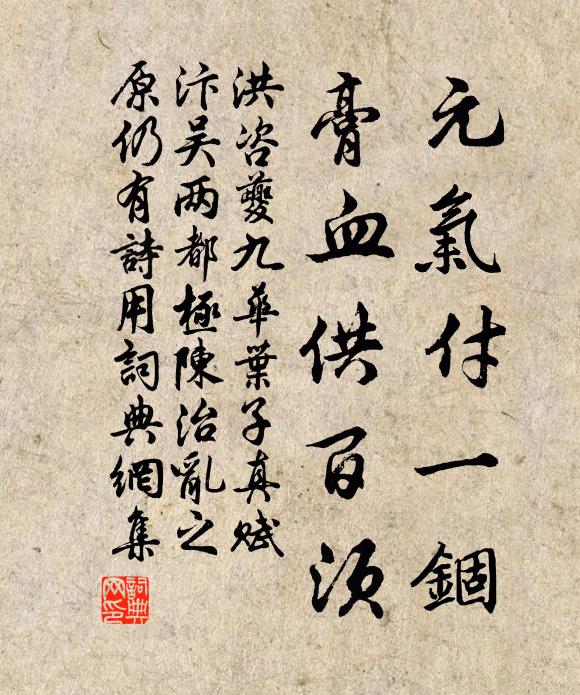 元氣付一錮
膏血供百須
洪咨夔九華葉子真賦
汴吴两都極陳治亂之
原仍有詩用詞典網集
詞典网印